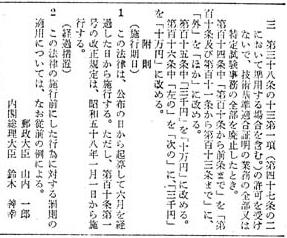 三　第三十八条の十三第一項(第四十七条の二
において準用する場合を含む。)の許可を受け
ないで、技術基準適合証明の業務の全部又は
特定試験事務の全部を廃止したとき。
第百十四条中「第百十条から前条まで」を「第
百十条及び第百十一条から第百十三条まで」に、
「外」を「ほか」に改める。
第百十五条中「三千円」を「十万円」に改める。
第百十六条中「左の」を「次の」に、「三千円」
を「十万円」に改める。
附　則
(施行期日)
1　この法律は、公布の日から起算して六月を経
過した日から施行する。ただし、第百十条第一
号の改正規定は、昭和五十八年一月一日から施
行する。
(経過措置)
2　この法律の施行前にした行為に対する罰則の
適用については、なお従前の例による。
郵政大臣　山内　一郎
内閣総理大臣　鈴木　善幸